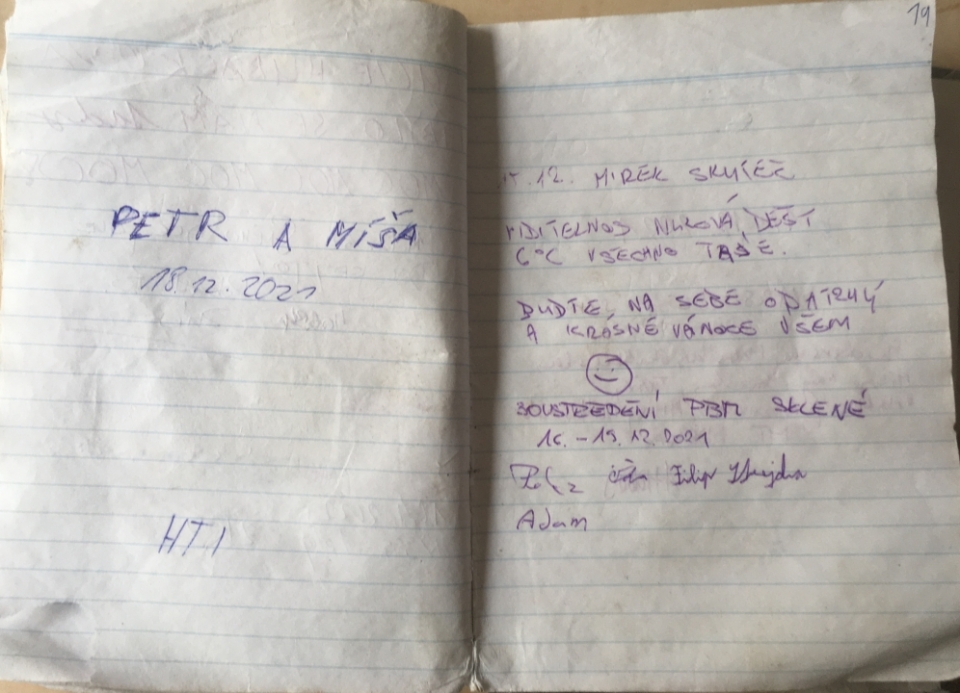 PETR A MÍŠA
18.12.2021
HTI
19
12. MIREK SKUTEČ
VIDITELNOS NULOVÁ, DÉŠŤ
6°C VŠECHNO TAJE.
BUĎTE, NA SEBE OPATRNÝ
A KRÁSNÉ VÁNOCE VŠEM
SOUSTŘEDĚNÍ SKLENÉ
16. – 19. 12. 2021
Filip
Adam